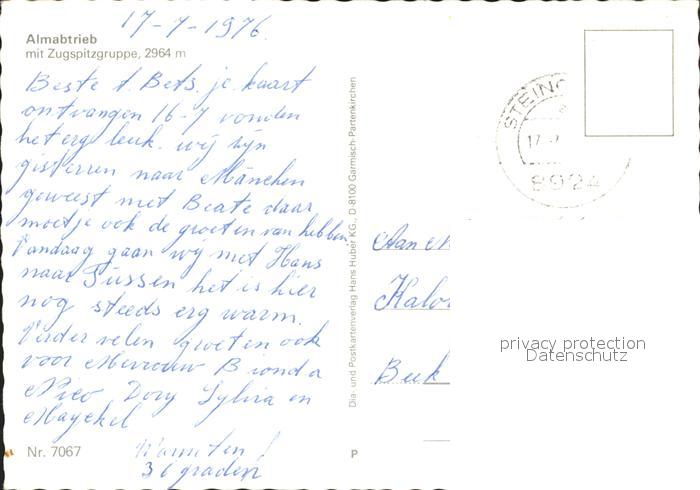 17-7-1976.
Almabtrieb
mit Zugspitzgruppe, 2964 m
Beste t. Bets. je kaart
ontvangen 16-7 vonden
het erg leuk. wij zijn
gisteren naar München
geweest met Beate daar
moetje ook de groeten van hebben
Vandaag gaan wij met Hans
naar Füssen het is hier
nog steeds erg warm.
Verder velen groeten ook
voor Mevrouw Bionda
Nico Dory Sylvia en
Maychel
Warmten!
36 graden
Nr. 7067
P
Dia- und Postkartenverlag Hans Huber KG., D-8100 Garmisch-Partenkirchen
STEING
17.-7.
8924
Aan
Beek
privacy protection
Datenschutz